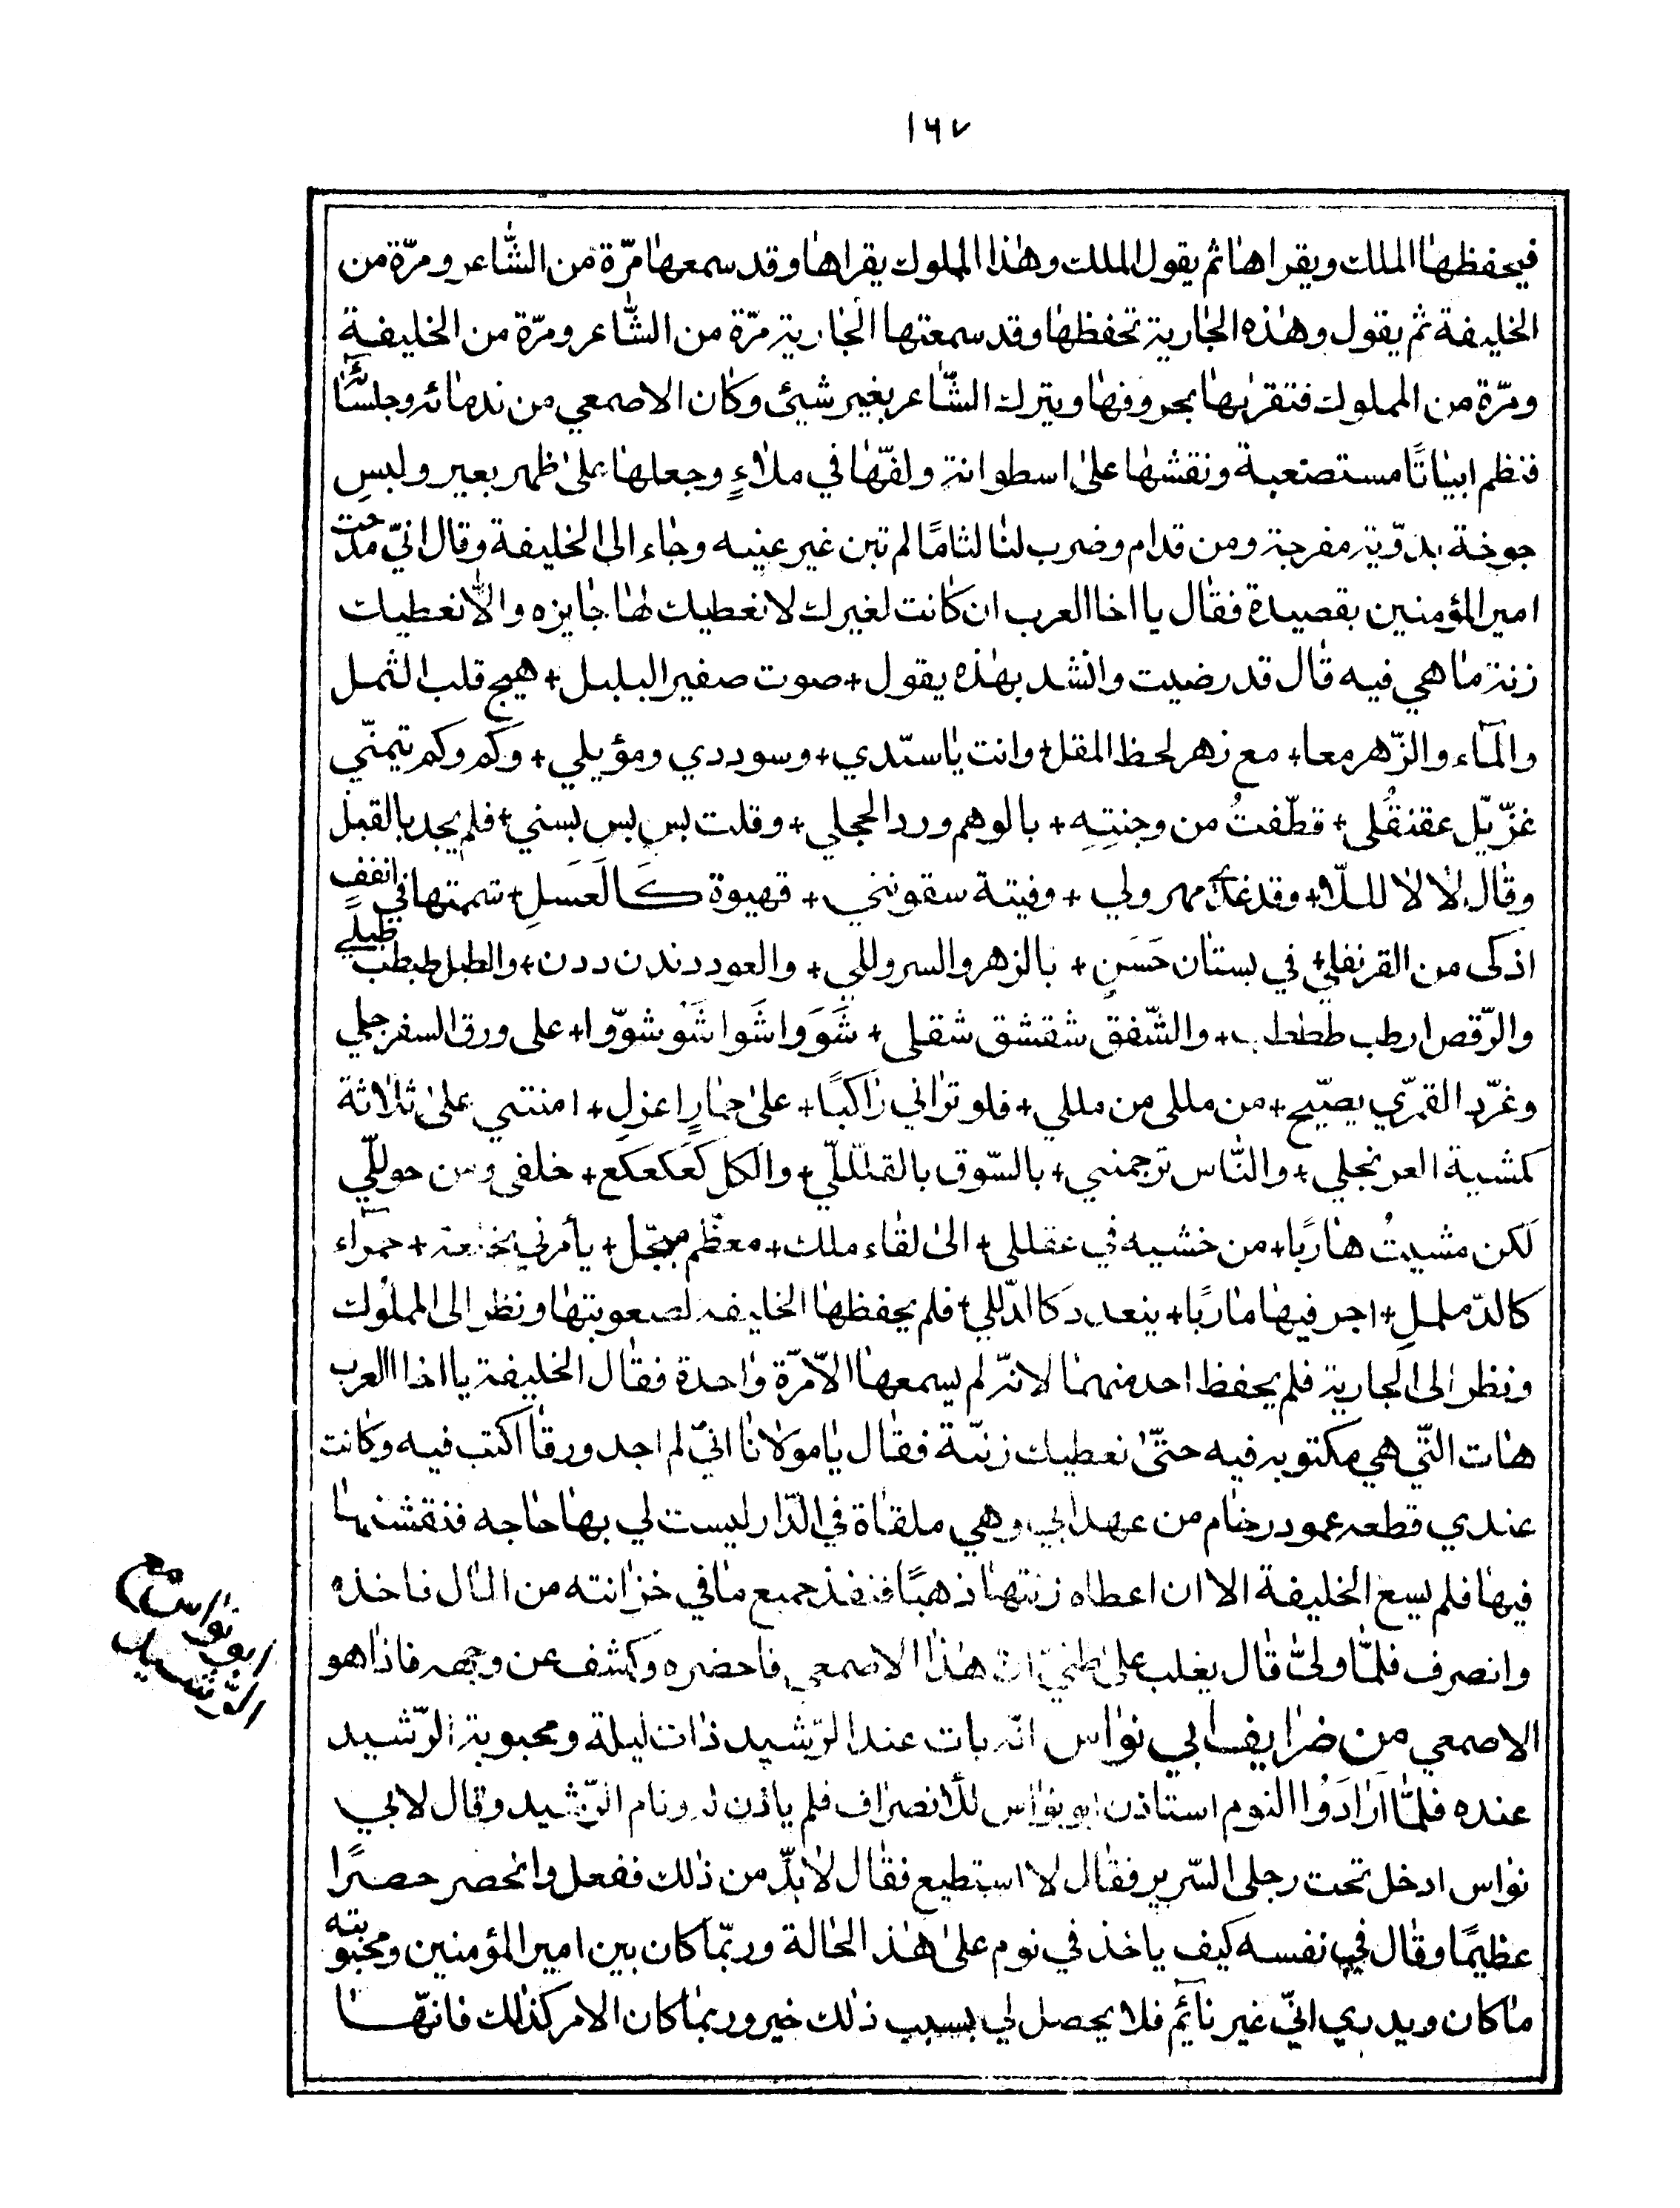 ١٦٧
فيحفظها الملك ويقراها ثم يقول الملك وهذا المملوك يقراها وقد سمعها مرّة من الشّاعر ومرّة من
الخليفة ثم يقول وهذه الجارية تحفظها وقد سمعتها الجارية مرّة من الشّاعر ومرّة من الخليفة
ومرّة من المملوك فتقربها بحروفها ويترك الشّاعر بغير شيئ وكان الاصمعي من ندمائه وجلسائه
فنظم ابياتًا مستصعبة ونقشها على اسطوانة ولفّها في ملاءٍ وجعلها على ظهر بعير ولبس
جوخة بدوّية مفرجة ومن قدام وضرب لنا لثامًا لم تبن غير عينيه وجاء الى الخليفة وقال انّي مدحت
امير المؤمنين بقصيدة فقال يا اخا العرب ان كانت لغيرك لا نعطيك لها جايزه والاّ نعطيك
زنة ما هي فيه قال قد رضيت وانشد بهذه يقول + صوت صفير البلبل + هيج قلب الثمل
والمآء والزّهر معا + مع زهر لحظ المقل + وانت يا سيّدي + وسوددي ومؤيلي + وكم وكم تيمنّي
غزّيّل عقنقلي + قطّفتُ من وجنتِهِ + بالوهم ورد الحجلي + وقلت بس بس بسني + فلم يجد بالقبل
وقال لا لا للّا + وقد غدا مهرولي + وفيتة سقونني + قهيوة كَالَعَسَلِ + شممتها في انففٍ
اذكى من القرنفلي + في بستان حَسَنٍ + بالزهر والسروللي + والعود دندن ددن + والطبل طبطب طبلي
والرّقص ارطب ططلب + والشّفق شقشق شقلي + شَوَوا شَوا شَوشوّوا + على ورق السفرجلي
وغرّد القمرّي يصيّح + من مللي من مللي + فلو تراني راكبًا + على حمارٍ اعزلِ + امنتي على ثلاثة
كمشية العرنجلي + والنّاس ترجمني + بالسّوق بالقلللّي + والكل كعكعكع + خلفي ومن حوللّي
لكن مشيتُ هاربًا + من خشيه في عقللي + الى لقاء ملك + معظّم مبجّل + يأمرني بخلعة + حمرآء
كالدّململِ + اجر فيها ماربًا + ينعددكا الدّللي + فلم يحفظها الخليفه لصعوبتها ونظر الى المملوك
ونظر الى الجارية فلم يحفظ احد منهما لانّه لم يسمعها الاّ مرّة واحدة فقال الخليفة يا اخا العرب
هات التّي هي مكتوبه فيه حتّى نعطيك زنتة فقال يا مولانا انيّ لم اجد ورقاً اكتب فيه وكانت
عندي قطعه عمود رخام من عهد ابي وهي ملقاة في الدّار ليست لي بها حاجه فنقشتها
فيها فلم يسع الخليفة الا ان اعطاه زنتها ذهبًا فنفذ جميع ما في خزانته من المال فاخذه
وانصرف فلمّا ولىّ قال يغلب على ظنيّ ان هذا الاصمعي فاحضره وكشف عن وجهه فاذا هو
الاصمعي من ضرايف ابي نواس انّه بات عند الرّشيد ذات ليلة ومحبوبة الرّشيد
عنده فلمّا اَرَادَوُا النوم استاذن ابو نواس للانصراف فلم ياذن له ونام الرّشيد وقال لابي
نواس ادخل تحت رجلى السّرير فقال لا استطيع فقال لا بدّ من ذلك ففعل وانحصر حصرًا
عظيمًا وقال في نفسه كيف ياخذ في نوم على هذ الحالة وربّما كان بين امير المؤمنين ومحبوبته
ما كان ويدري انيّ غير نائم فلا يحصل لي بسبب ذلك خير وربما كان الامر كذلك فانهّا
ابو نواس مع
الرّشيد